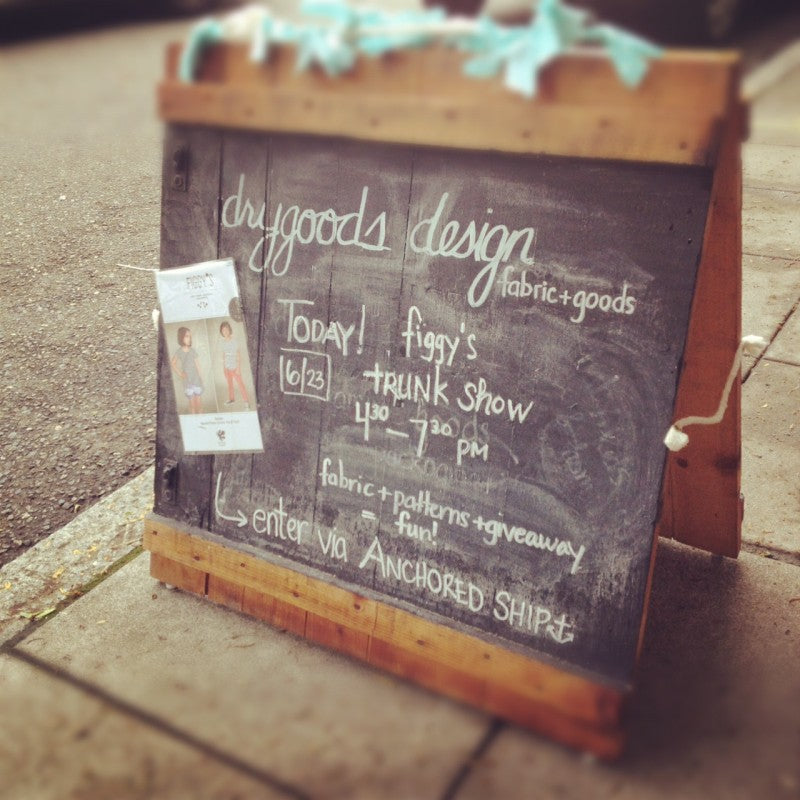 drygoods design
fabric+goods
FIGGY'S
TODAY! figgy's
6|23 TRUNK show
4³⁰ – 7³⁰ PM
fabric + patterns + giveaway
= fun!
enter via ANCHORED SHIP